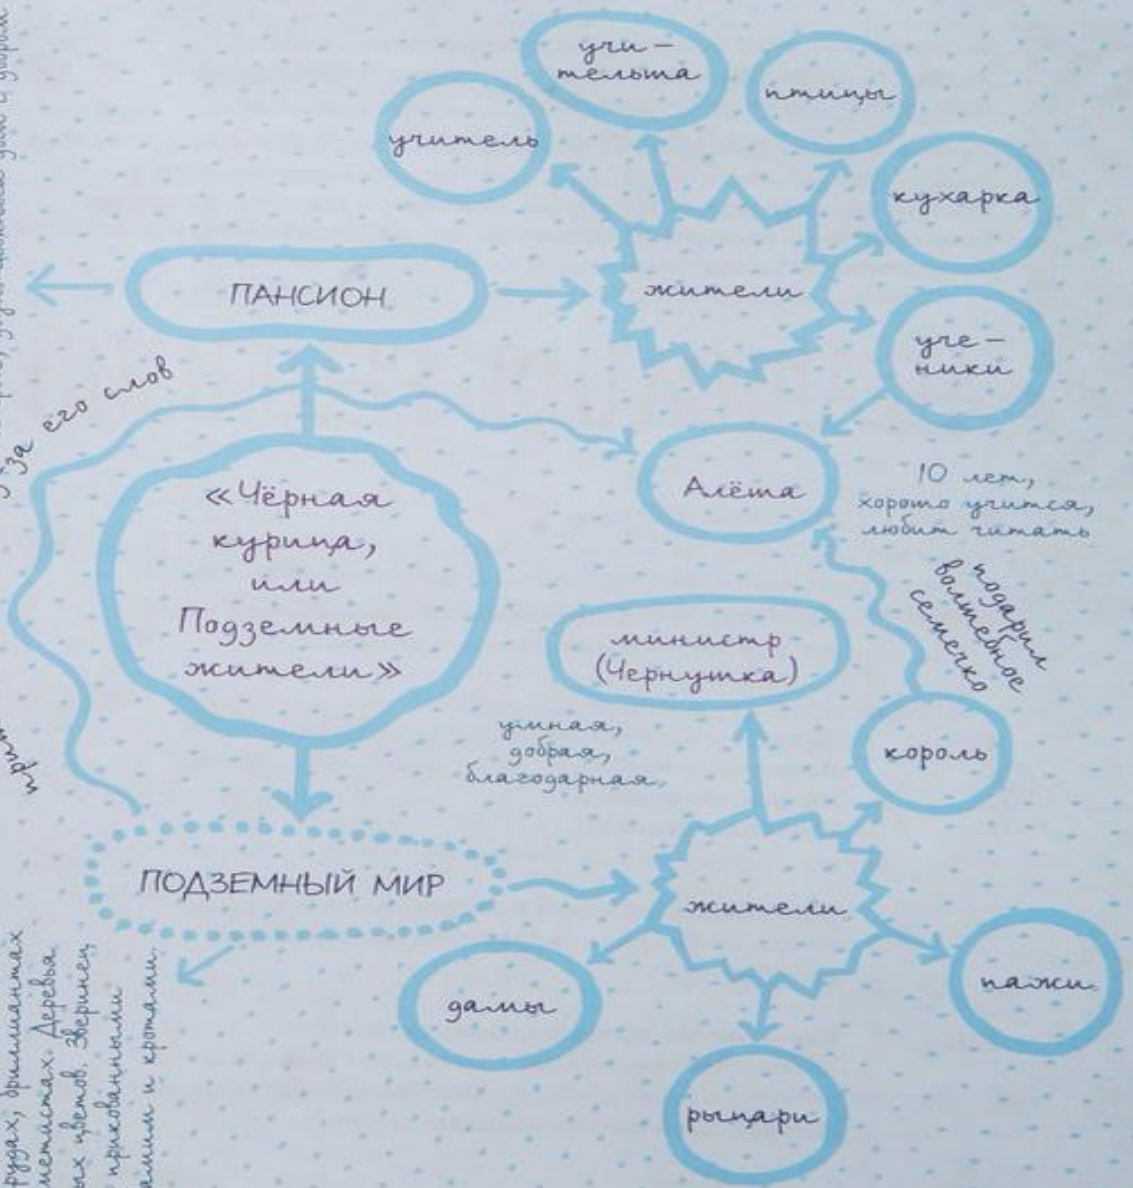 учи-
тельша
птицы
учитель
кухарка
ПАНСИОН
жители
уче-
ники
за его слов
«Чёрная
курица,
или
Подземные
жители»
Алёша
10 лет,
хорошо учится,
любит читать
подарил
волшебное
семечко
министр
(Чернушка)
умная,
добрая,
благодарная
король
ПОДЗЕМНЫЙ МИР
жители
дамы
пажи
рыцари
рудах, бриллиантах
метистах. Деревья
ых цветов. Зверинец
прикованными
ами и кротами.